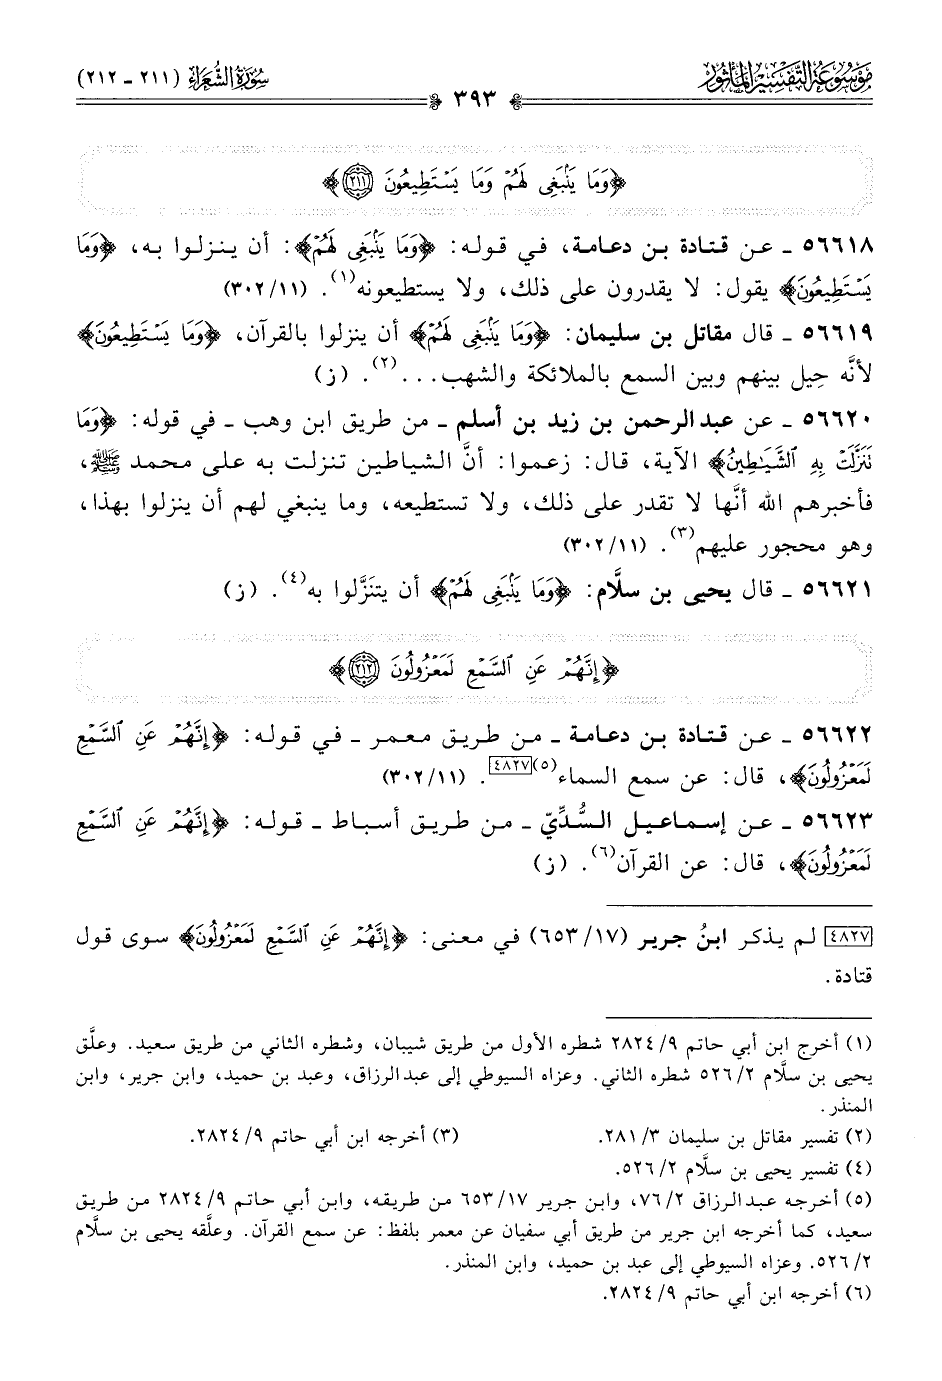 مَوْسُوعَة التَّفْسِيْر المَأْثُور
سُورَةُ الشُّعَرَاء (٢١١ - ٢١٢)
٣٩٣
﴿وَمَا يَنۢبَغِى لَهُمۡ وَمَا يَسۡتَطِيعُونَ ٢١١﴾
٥٦٦١٨ ـ عن قتادة بن دعامة، في قوله: ﴿وَمَا يَنۢبَغِى لَهُمۡ﴾: أن ينزلوا به، ﴿وَمَا
يَسۡتَطِيعُونَ﴾ يقول: لا يقدرون على ذلك، ولا يستطيعونه(١). (٣٠٢/١١)
٥٦٦١٩ ـ قال مقاتل بن سليمان: ﴿وَمَا يَنۢبَغِى لَهُمۡ﴾ أن ينزلوا بالقرآن، ﴿وَمَا يَسۡتَطِيعُونَ﴾
لأنَّه حِيل بينهم وبين السمع بالملائكة والشهب...(٢). (ز)
٥٦٦٢٠ ـ عن عبدالرحمن بن زيد بن أسلم ـ من طريق ابن وهب ـ في قوله: ﴿وَمَا
تَنَزَّلَتۡ بِهِ ٱلشَّيَٰطِينُ﴾ الآية، قال: زعموا: أنَّ الشياطين تنزلت به على محمد ﷺ،
فأخبرهم الله أنَّها لا تقدر على ذلك، ولا تستطيعه، وما ينبغي لهم أن ينزلوا بهذا،
وهو محجور عليهم(٣). (٣٠٢/١١)
٥٦٦٢١ ـ قال يحيى بن سلَّام: ﴿وَمَا يَنۢبَغِى لَهُمۡ﴾ أن يتنَزَّلوا به(٤). (ز)
﴿إِنَّهُمۡ عَنِ ٱلسَّمۡعِ لَمَعۡزُولُونَ ٢١٢﴾
٥٦٦٢٢ ـ عن قتادة بن دعامة ـ من طريق معمر ـ في قوله: ﴿إِنَّهُمۡ عَنِ ٱلسَّمۡعِ
لَمَعۡزُولُونَ﴾، قال: عن سمع السماء(٥)[٤٨٢٧]. (٣٠٢/١١)
٥٦٦٢٣ ـ عن إسماعيل السُّدِّيّ ـ من طريق أسباط ـ قوله: ﴿إِنَّهُمۡ عَنِ ٱلسَّمۡعِ
لَمَعۡزُولُونَ﴾، قال: عن القرآن(٦). (ز)
[٤٨٢٧] لم يذكر ابنُ جرير (٦٥٣/١٧) في معنى: ﴿إِنَّهُمۡ عَنِ ٱلسَّمۡعِ لَمَعۡزُولُونَ﴾ سوى قول
قتادة.
(١) أخرج ابن أبي حاتم ٢٨٢٤/٩ شطره الأول من طريق شيبان، وشطره الثاني من طريق سعيد. وعلَّق
يحيى بن سلَّام ٥٢٦/٢ شطره الثاني. وعزاه السيوطي إلى عبدالرزاق، وعبد بن حميد، وابن جرير، وابن
المنذر.
(٢) تفسير مقاتل بن سليمان ٢٨١/٣. (٣) أخرجه ابن أبي حاتم ٢٨٢٤/٩.
(٤) تفسير يحيى بن سلَّام ٥٢٦/٢.
(٥) أخرجه عبدالرزاق ٧٦/٢، وابن جرير ٦٥٣/١٧ من طريقه، وابن أبي حاتم ٢٨٢٤/٩ من طريق
سعيد، كما أخرجه ابن جرير من طريق أبي سفيان عن معمر بلفظ: عن سمع القرآن. وعلَّقه يحيى بن سلَّام
٥٢٦/٢. وعزاه السيوطي إلى عبد بن حميد، وابن المنذر.
(٦) أخرجه ابن أبي حاتم ٢٨٢٤/٩.